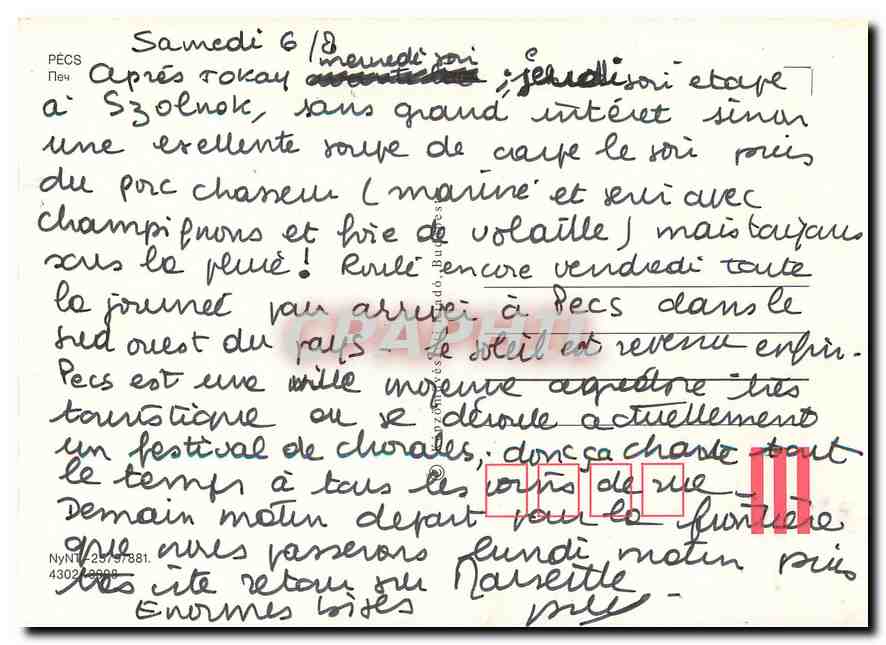 Samedi 6/8
PÉCS
Печ
mercredi soir
Après Tokay ; jeudi soir etape
à Szolnok, sans grand intéret sinon
une exellente soupe de carpe le soir puis
du porc chasseur (mariné et servi avec
champignons et foie de volaille) mais toujours
sous la pluie! Roulé encore vendredi toute
la journeé pour arriver à Pecs dans le
sud ouest du pays - Le soleil est revenu enfin.
Pecs est une ville moyenne agréable très
touristique ou se déroule actuellement
un festival de chorales, donc ça chante tout
le temps à tous les coins de rue -
Demain matin depart pour la frontière
que nous passerons lundi matin puis
NyNT-
881.
très vite retour sur Marseille
4302
Enormes bises
CPAPHIL